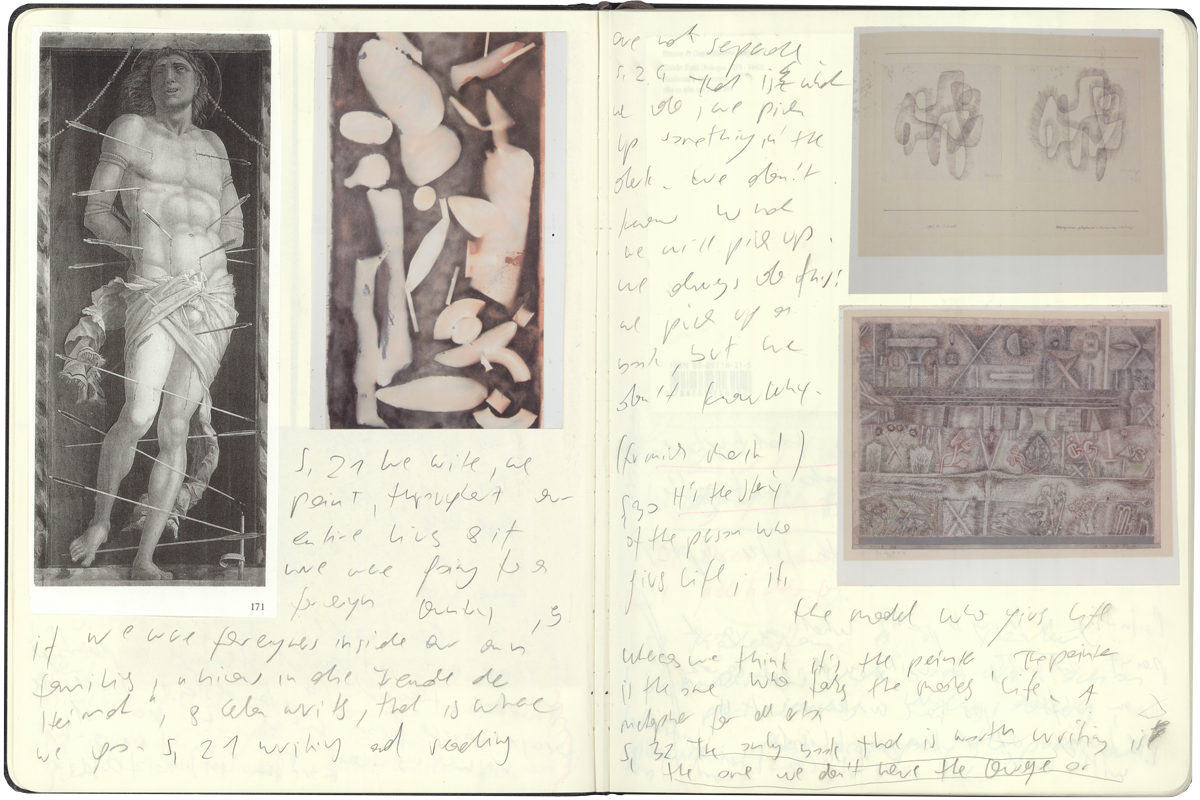 171
S, 21 We write, we
paint, throughout our
entire lives as if
we were going to a
foreign country, as
if we were foreigners inside our own
families, "hinaus in die Fremde der
Heimat", as Celan writes, that is where
we go. S, 21 writing and reading
are not separate
S, 24 that is what
we do, we pick
up something in the
dark. we don't
know what
we will pick up.
we always do this:
we pick up a
book, but we
don't know why.
S, 30 It's the story
of the person who
gives life, it's
the model who gives life
whereas we think it's the painter. The painter
is the one who takes the model's life. A
metaphor for all arts
S, 32 The only book that is worth writing is
the one we don't have the courage or